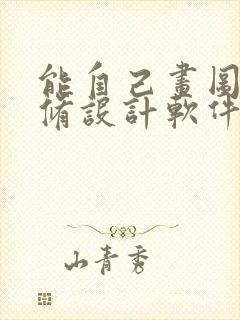 能自己畫圖
脩設計軟件
山青秀